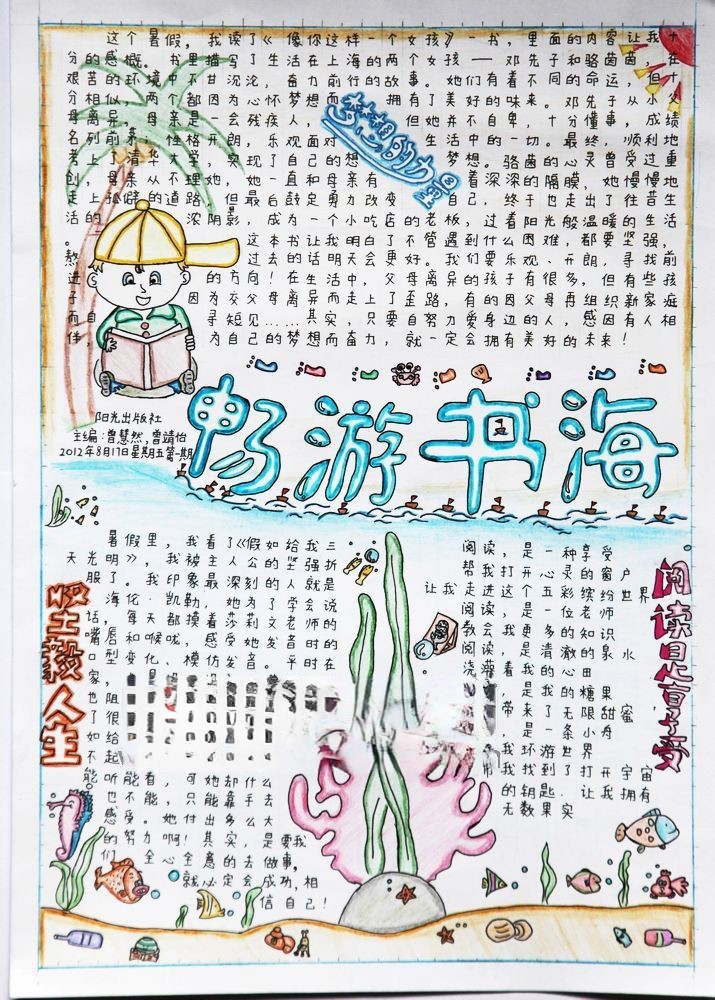 这个暑假,我读了《像你这样一个女孩》一书,里面的内容让我十
分的感慨。书里描写了生活在上海的两个女孩——邓先子和骆茵茵,在
艰苦的环境中不甘沉沦,奋力前行的故事。她们有着不同的命运,但十
分相似,两个都因为心怀梦想而 拥有了美好的味来。邓先子从小父
母离异,母亲是一么残疾人, 但她并不自卑,十分懂事,成绩
名列前茅,性格开朗,乐观面对 生活中的一切。最终,顺利地
考上了清华大学,实现了自己的想 梦想。骆茵的心灵曾受过重
创,母亲从不理她,她一直和母亲有 着深深的隔膜,她慢慢地
走上孤僻的道路,但最后鼓足勇力改变 自己,终于也走出了往昔生
活的 浓阴影,成为一个小吃店的老板,过着阳光般温暖的生活
。 这本书让我明白了不管遇到什么困难,都要坚强,
熬 过去的话明天会更好。我们要乐观、开朗,寻找前
进 的方向!在生活中,父母离异的孩子有很多,但有些孩
子 因为交父母离异而走上了歪路,有的因父母再组织新家庭
而自 寻短见……其实,只要自努力爱身边的人,感因有人相
伴, 为自己的梦想而奋力,就一定会拥有美好的未来!
梦想的力量
阳光出版社
主编:曾慧然,曾靖怡
2012年8月17日星期五第一期
畅游书海
暑假里,我看了《假如给我三
天光明》,我被主人公的坚强折
服了。我印象最深刻的人就是
海伦·凯勒,她为了学会说
话,每天都摸着莎莉文老师的
嘴唇和喉咙,感受她发音时的
口型变化、模仿发音。平时在
家,
也阻
了很
如给
不起
能听能看,可她却什么
也不能,只能靠手去
感受。她付出多么大
的努力啊!其实,是要我
们 全心全意的去做事,
就必定会成功,相
信自己!
坚毅人生
阅读,是一种享受
帮我打开心灵的窗户
让我走进这个五彩缤纷世界
阅读,是一位老师
教会我更多的知识
阅读,是清澈的泉水
浇灌着我的心田
,是我的糖果
带来了无限甜蜜
,是一条小舟
我环游世界
我找到了打开宇宙
的钥匙.让我拥有
无数果实
阅读是享受